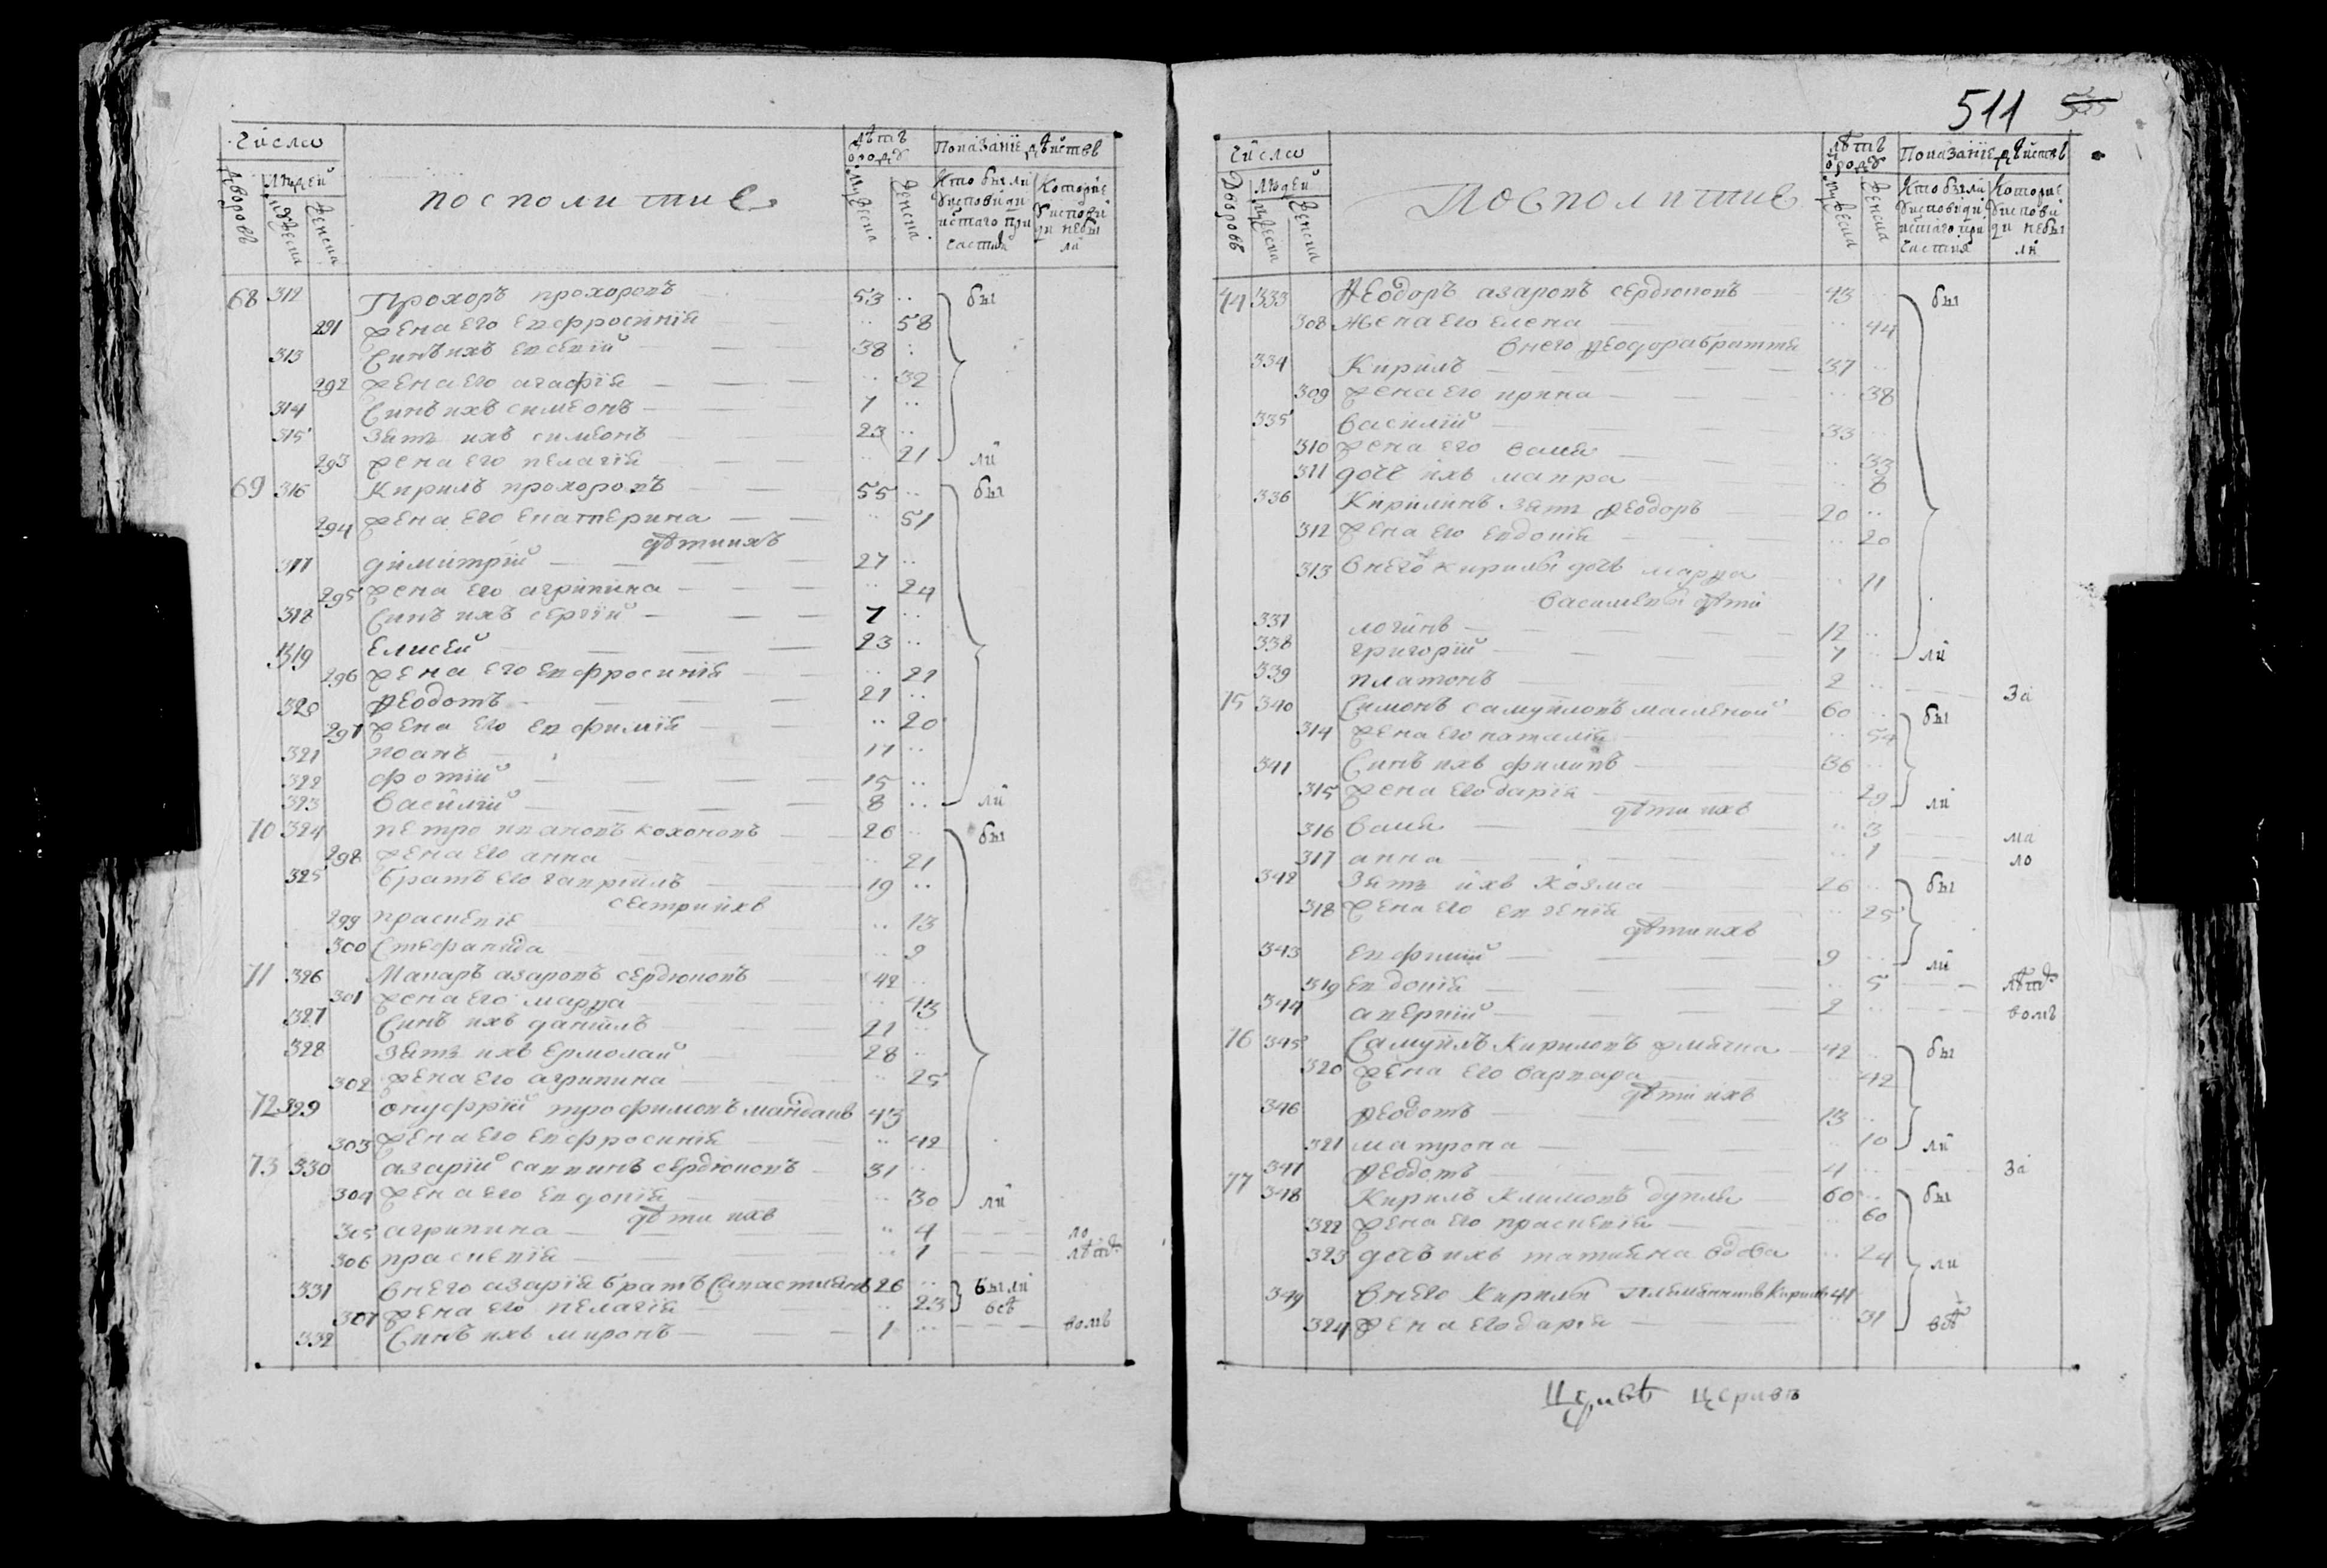 Числа
Людей
Дворовъ
мужеска
женска
посполитие
лѣтъ
отроду
мужеска
женска
Показанїе дѣйствъ
Кто были
у исповѣди
и с̃таго при
частия
Которие
у исповѣ
ди небы
ли
68 312 Прохоръ прохоровъ 53 бы
291 жена его евфросинїя 58
313 Синъ ихъ евсевїй 38
292 жена его агафїя 32
314 Синъ ихъ симеонъ 7
315 Зять ихъ симеонъ 23
293 жена его пелагїя 21 ли
69 316 Кирилъ прохоровъ 55 бы
294 жена его екатерина 51
дѣти ихъ
317 димитрїй 27
295 жена его агрипина 24
318 Синъ ихъ сергїй 7
319 Елисей 23
296 жена его евфросинїя 21
320 Ѳеодотъ 21
297 жена его евфимїя 20
321 иоанъ 17
322 фотїй 15
323 василїй 8 ли
70 324 петро ивановъ кохоновъ 26 бы
298 жена его анна 21
325 братъ его гаврїилъ 19
сестри ихъ
299 праскевїе 13
300 Стефанида 9
71 326 Макаръ азаровъ сердюковъ 42
301 жена его марѳа 43
327 Синъ ихъ данїилъ 21
328 Зять ихъ ермолай 28
302 жена его агрипина 25
72 329 онуфрїй трофимовъ майданъ 43
303 жена его евфросинїя 42
73 330 азарїй саввинъ сердюковъ 31
304 жена его евдокїя 30 ли
дѣти ихъ
305 агрипина 4 ло
306 праскевїя 1 лѣтс
331 в него азарїя братъ Савастиянъ 26 были
307 жена его пелагїя 23 всѣ
332 Синъ ихъ миронъ 1 вомъ
511
Числа
Людей
Дворовъ
мужеска
женска
Посполитие
лѣтъ
отроду
мужеска
женска
Показанїе дѣйствъ
Кто были
у исповѣди
и с̃таго при
частия
Которие
у исповѣ
ди небы
ли
74 333 Ѳеодоръ азаровъ сердюковъ 43 бы
308 Жена его елена 44
в него Ѳеодора браття
334 Кирилъ 37
309 жена его ирина 38
335 василїй 33
310 жена его васия 33
311 дочъ ихъ мавра 8
336 Кирилинъ зять Ѳеодоръ 20
312 жена его евдокїя 20
313 в него кирилы дочъ марѳа 11
василевы дѣти
337 логинъ 12
338 григорїй 7 ли
339 платонъ 2 За
75 340 Симонъ самуиловъ масленой 60 бы
314 жена его наталїя 54
341 Синъ ихъ филипъ 36
315 жена его дарїя 29 ли
дѣти ихъ
316 васия 3 ма
317 анна 1 ло
342 Зять ихъ Козма 26 бы
318 жена его евгенїя 25
дѣти ихъ
343 евфимїй 9 ли
319 евдокїя 5 лѣтс
344 аверкїй 2 вомъ
76 345 Самуилъ Кириловъ жмакна 42 бы
320 жена его варвара 42
дѣти ихъ
346 Ѳеодотъ 13
321 матрона 10 ли
347 Ѳеодотъ 4 За
77 348 Кирилъ Климовъ дупля 60 бы
322 жена его праскевїя 60
323 дочъ ихъ татияна вдова 24 ли
349 в него Кирилы племянникъ Кирилъ 41
324 жена его дарїя 31 всѣ